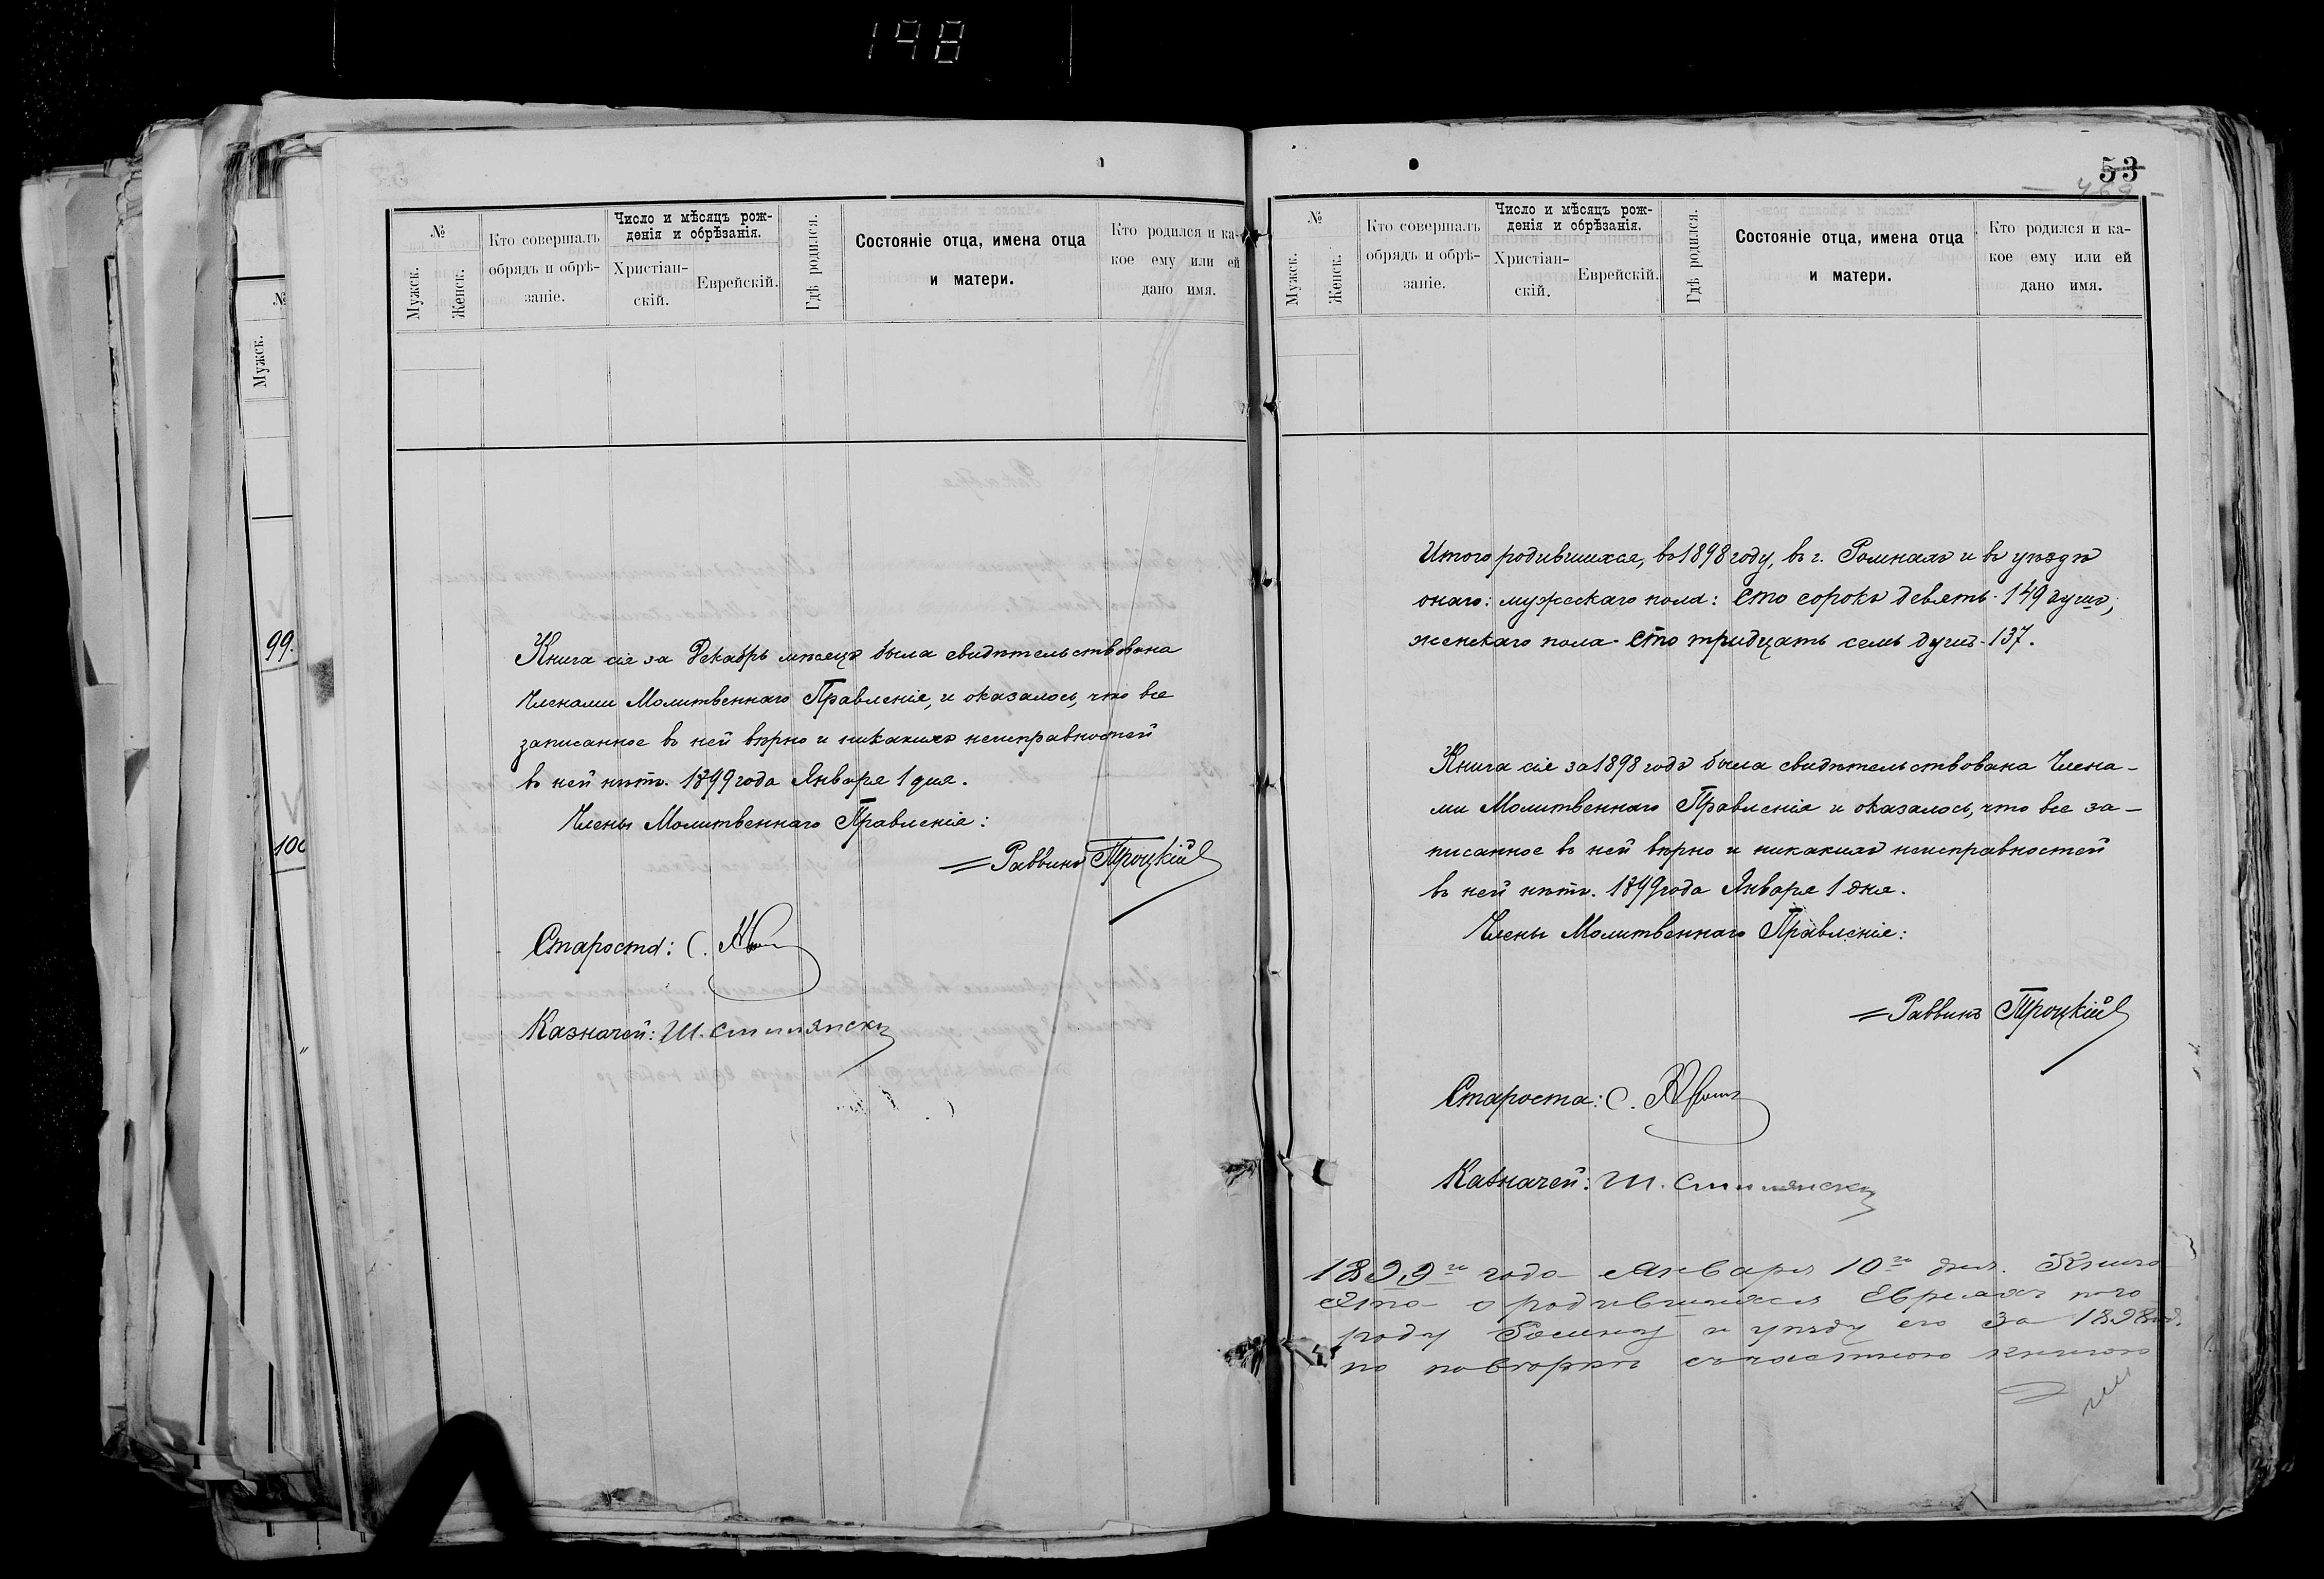 198
№
Мужск.
99.
100
№
Мужск.
Женск.
Кто совершалъ
обрядъ и обрѣ-
заніе.
Число и мѣсяцъ рож-
денія и обрѣзанія.
Христіан-
скій.
Еврейскій.
Гдѣ родился.
Состояніе отца, имена отца
и матери.
Кто родился и ка-
кое ему или ей
дано имя.
Книга сія за Декабрь мѣсяцъ была свидѣтельствована
Членами Молитвеннаго Правленія, и оказалось, что все
записанное въ ней вѣрно и никакихъ неисправностей
въ ней нѣтъ. 1899 года Января 1 дня.
Члены Молитвеннаго Правленія:
Раввинъ Троцкій
Староста: С.
Казначей: Ш. Смилянски
53
469
№
Мужск.
Женск.
Кто совершалъ
обрядъ и обрѣ-
заніе.
Число и мѣсяцъ рож-
денія и обрѣзанія.
Христіан-
скій.
Еврейскій.
Гдѣ родился.
Состояніе отца, имена отца
и матери.
Кто родился и ка-
кое ему или ей
дано имя.
Итого родившихся, въ 1898 году, въ г. Ромнахъ и въ уѣздѣ
онаго: мужескаго пола: сто сорокъ девять - 149 душъ;
женскаго пола - сто тридцать семь душъ - 137.
Книга сія за 1898 годъ была свидѣтельствована Члена-
ми Молитвеннаго Правленія и оказалось, что все за-
писанное въ ней вѣрно и никакихъ неисправностей
въ ней нѣтъ. 1899 года Января 1 дня.
Члены Молитвеннаго Правленія:
Раввинъ Троцкій
Староста: С.
Казначей: Ш. Смилянски
1899 го года Января 10 го дня. Книга
эта о родившихся Евреяхъ по го
роду Ромну и уѣзду его за 1898 год.
по повѣркѣ съ частною книгою